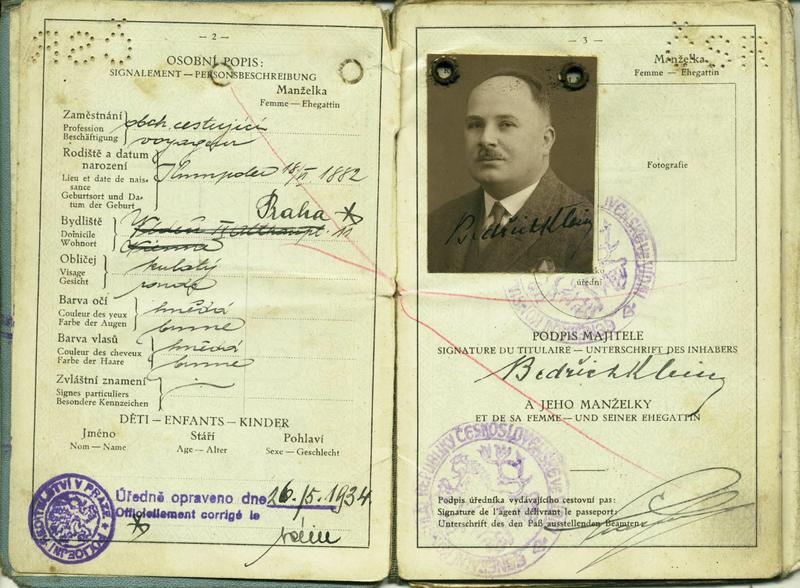 — 2 —
OSOBNÍ POPIS:
SIGNALEMENT — PERSONSBESCHREIBUNG
Manželka
Femme — Ehegattin
Zaměstnání
Profession
Beschäftigung
obch. cestující
voyageur
Rodiště a datum
narození
Lieu et date de nais-
sance
Geburtsort und Da-
tum der Geburt
Humpolec 18/VI 1882
Praha *
Bydliště
Domicile
Wohnort
Vídeň II 11
Vienne
Obličej
Visage
Gesicht
kulatý
rond
Barva očí
Couleur des yeux
Farbe der Augen
hnědá
brune
Barva vlasů
Couleur des cheveux
Farbe der Haare
hnědá
brune
Zvláštní znamení
Signes particuliers
Besondere Kennzeichen
—
DĚTI — ENFANTS — KINDER
Jméno Stáří Pohlaví
Nom — Name Age — Alter Sexe — Geschlecht
POLICEJNÍ ŘEDITELSTVÍ V PRAZE
Úředně opraveno dne 26./5. 1934
Officiellement corrigé le
*
— 3 —
Manželka
Femme — Ehegattin
Fotografie
Bedřich Klein
úřední
PODPIS MAJITELE
SIGNATURE DU TITULAIRE — UNTERSCHRIFT DES INHABERS
Bedřich Klein
A JEHO MANŽELKY
ET DE SA FEMME — UND SEINER EHEGATTIN
Podpis úředníka vydávajícího cestovní pas:
Signature de l'agent délivrant le passeport:
Unterschrift des den Paß ausstellenden Beamten: